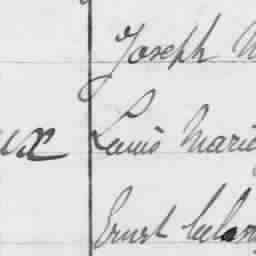 Joseph
ux Louis Marie
Ernest